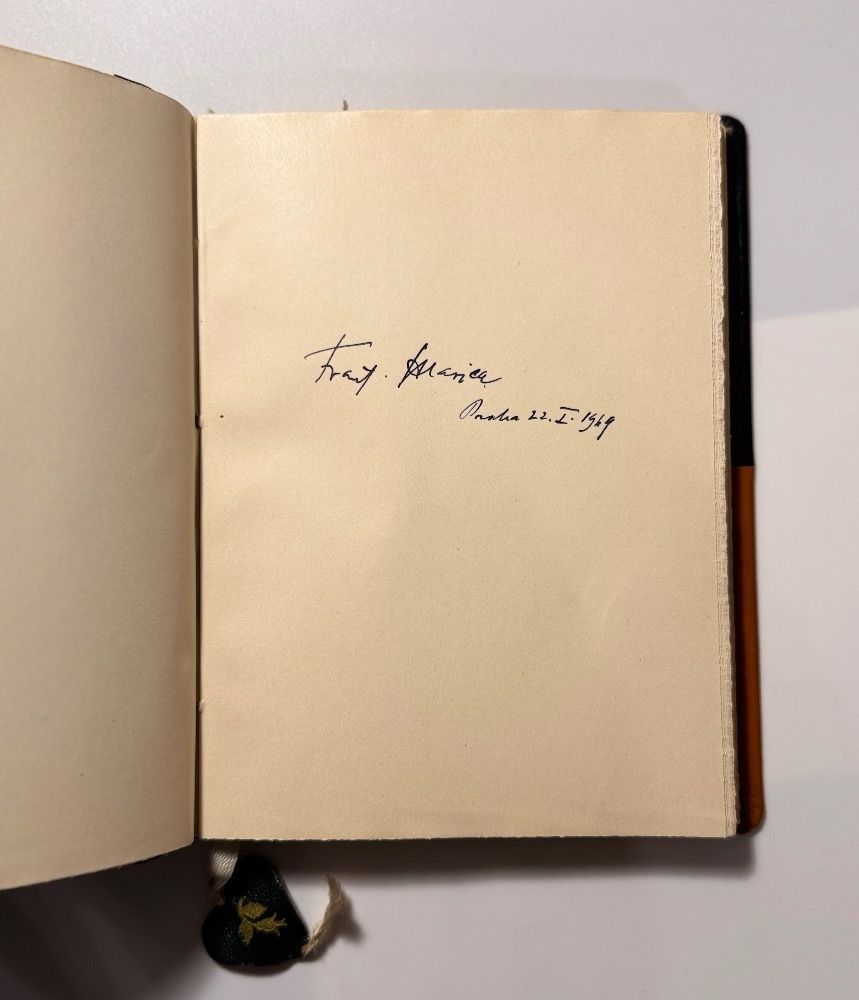 Frant. Hlavica
Praha 22. I. 1969